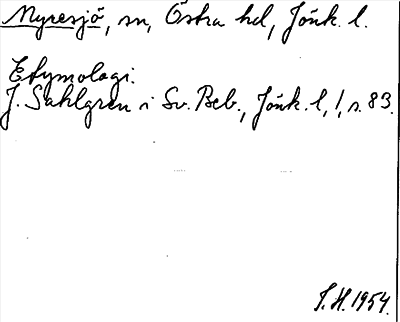 Myresjö, sn, Östra hd, Jönk. l.
Etymologi.
J. Sahlgren i Sv. Beb., Jönk. l, 1, s. 83.
I.H. 1954.